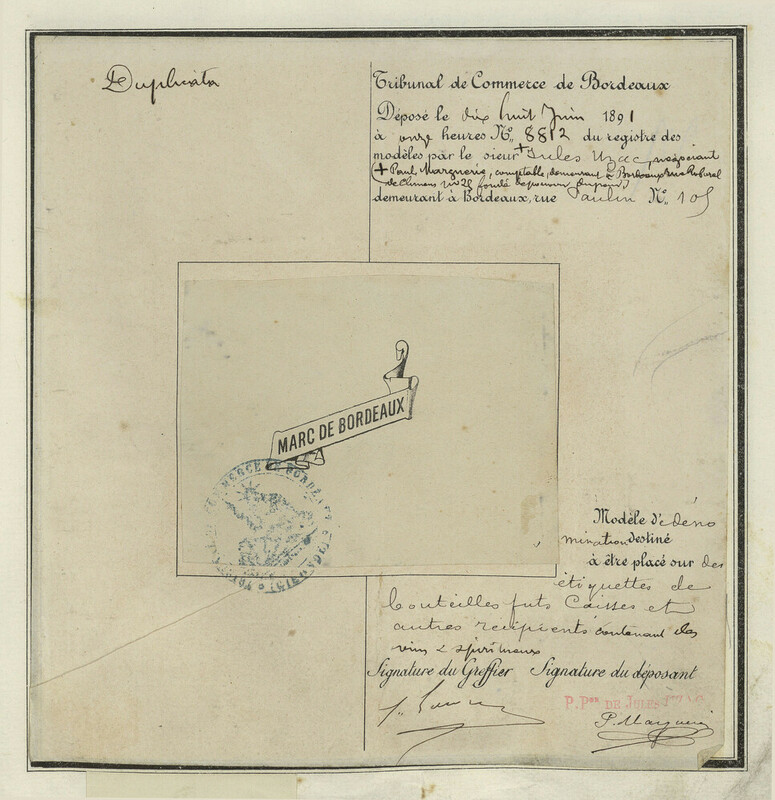 Duplicata
Tribunal de Commerce de Bordeaux
Déposé le dix huit Juin 1891
à onze heures No. 8812 du registre des
modèles par le sieur + Jules Uzac, négociant
(+ Paul Marguerie, comptable, demeurant à Bordeaux rue
de No 25 fondé de pouvoir
demeurant à Bordeaux, rue Paulin No. 105
MARC DE BORDEAUX
COMMERCE DE BORDEAUX
Modèle de déno
mination destiné
à être placé sur des
étiquettes de
bouteilles futs Caisses et
autres recipients contenant des
vins & spiritueux
Signature du Greffier Signature du déposant
P. Pon DE JULES UZAC
P. Marguerie